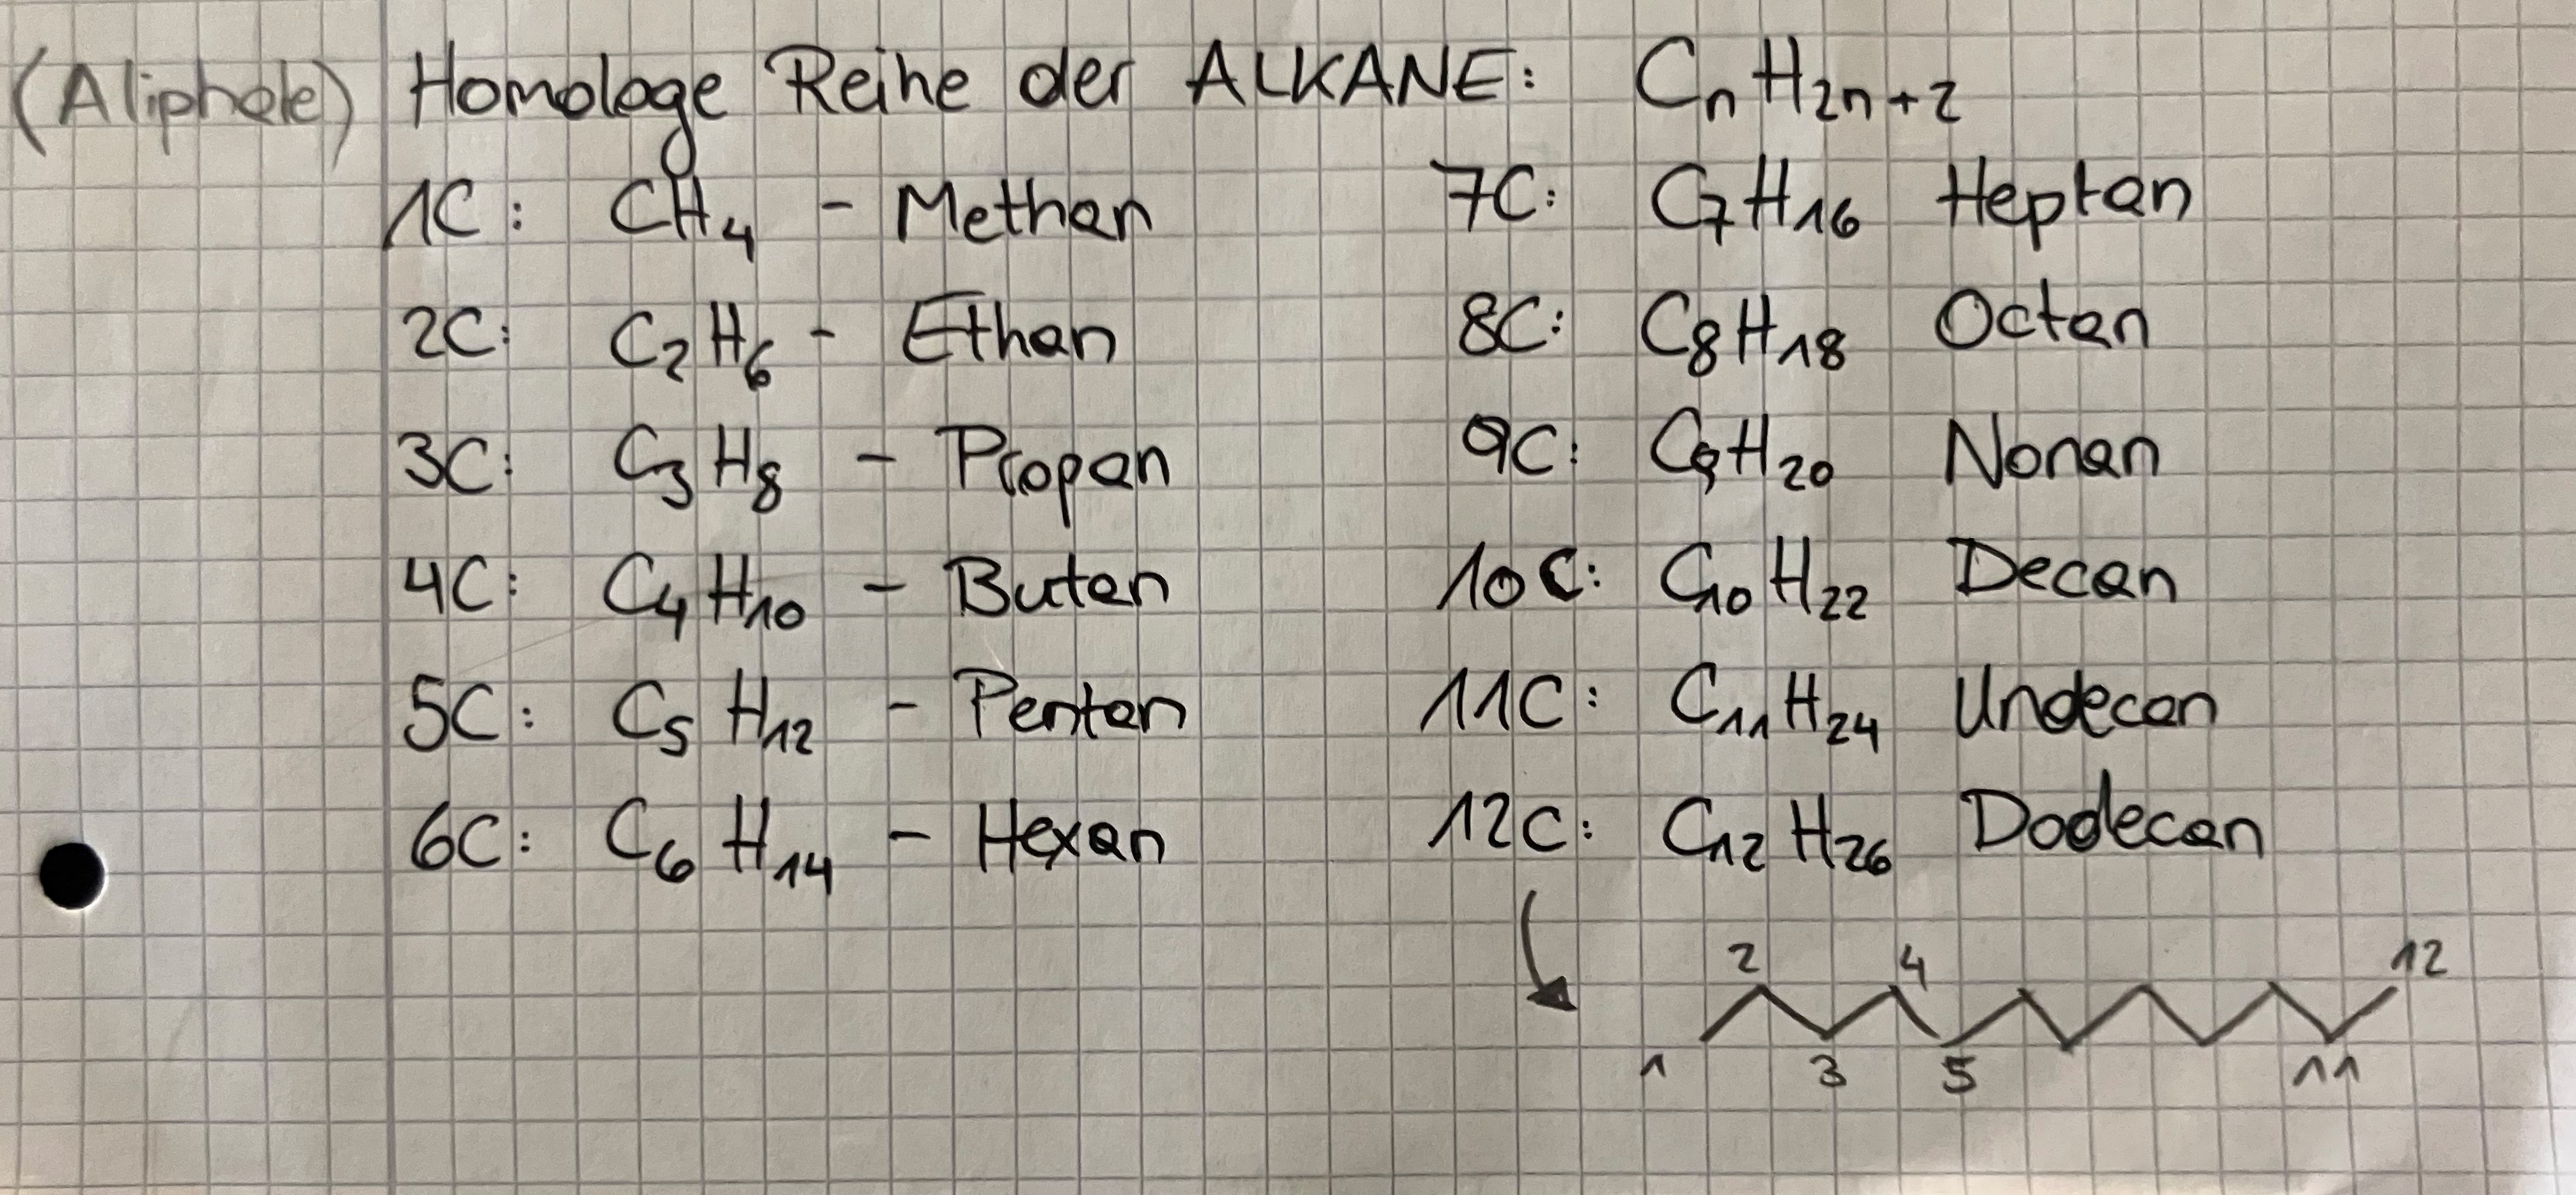 (Aliphate) Homologe Reihe der ALKANE: CₙH₂ₙ₊₂
1C: CH₄ - Methan
2C: C₂H₆ - Ethan
3C: C₃H₈ - Propan
4C: C₄H₁₀ - Butan
5C: C₅H₁₂ - Pentan
6C: C₆H₁₄ - Hexan
7C: C₇H₁₆ Heptan
8C: C₈H₁₈ Octan
9C: C₉H₂₀ Nonan
10C: C₁₀H₂₂ Decan
11C: C₁₁H₂₄ Undecan
12C: C₁₂H₂₆ Dodecan
2 4 12
1 3 5 11